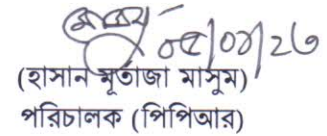 ০৫/০১/২৬
(হাসান মূর্তাজা মাসুম)
পরিচালক (পিপিআর)